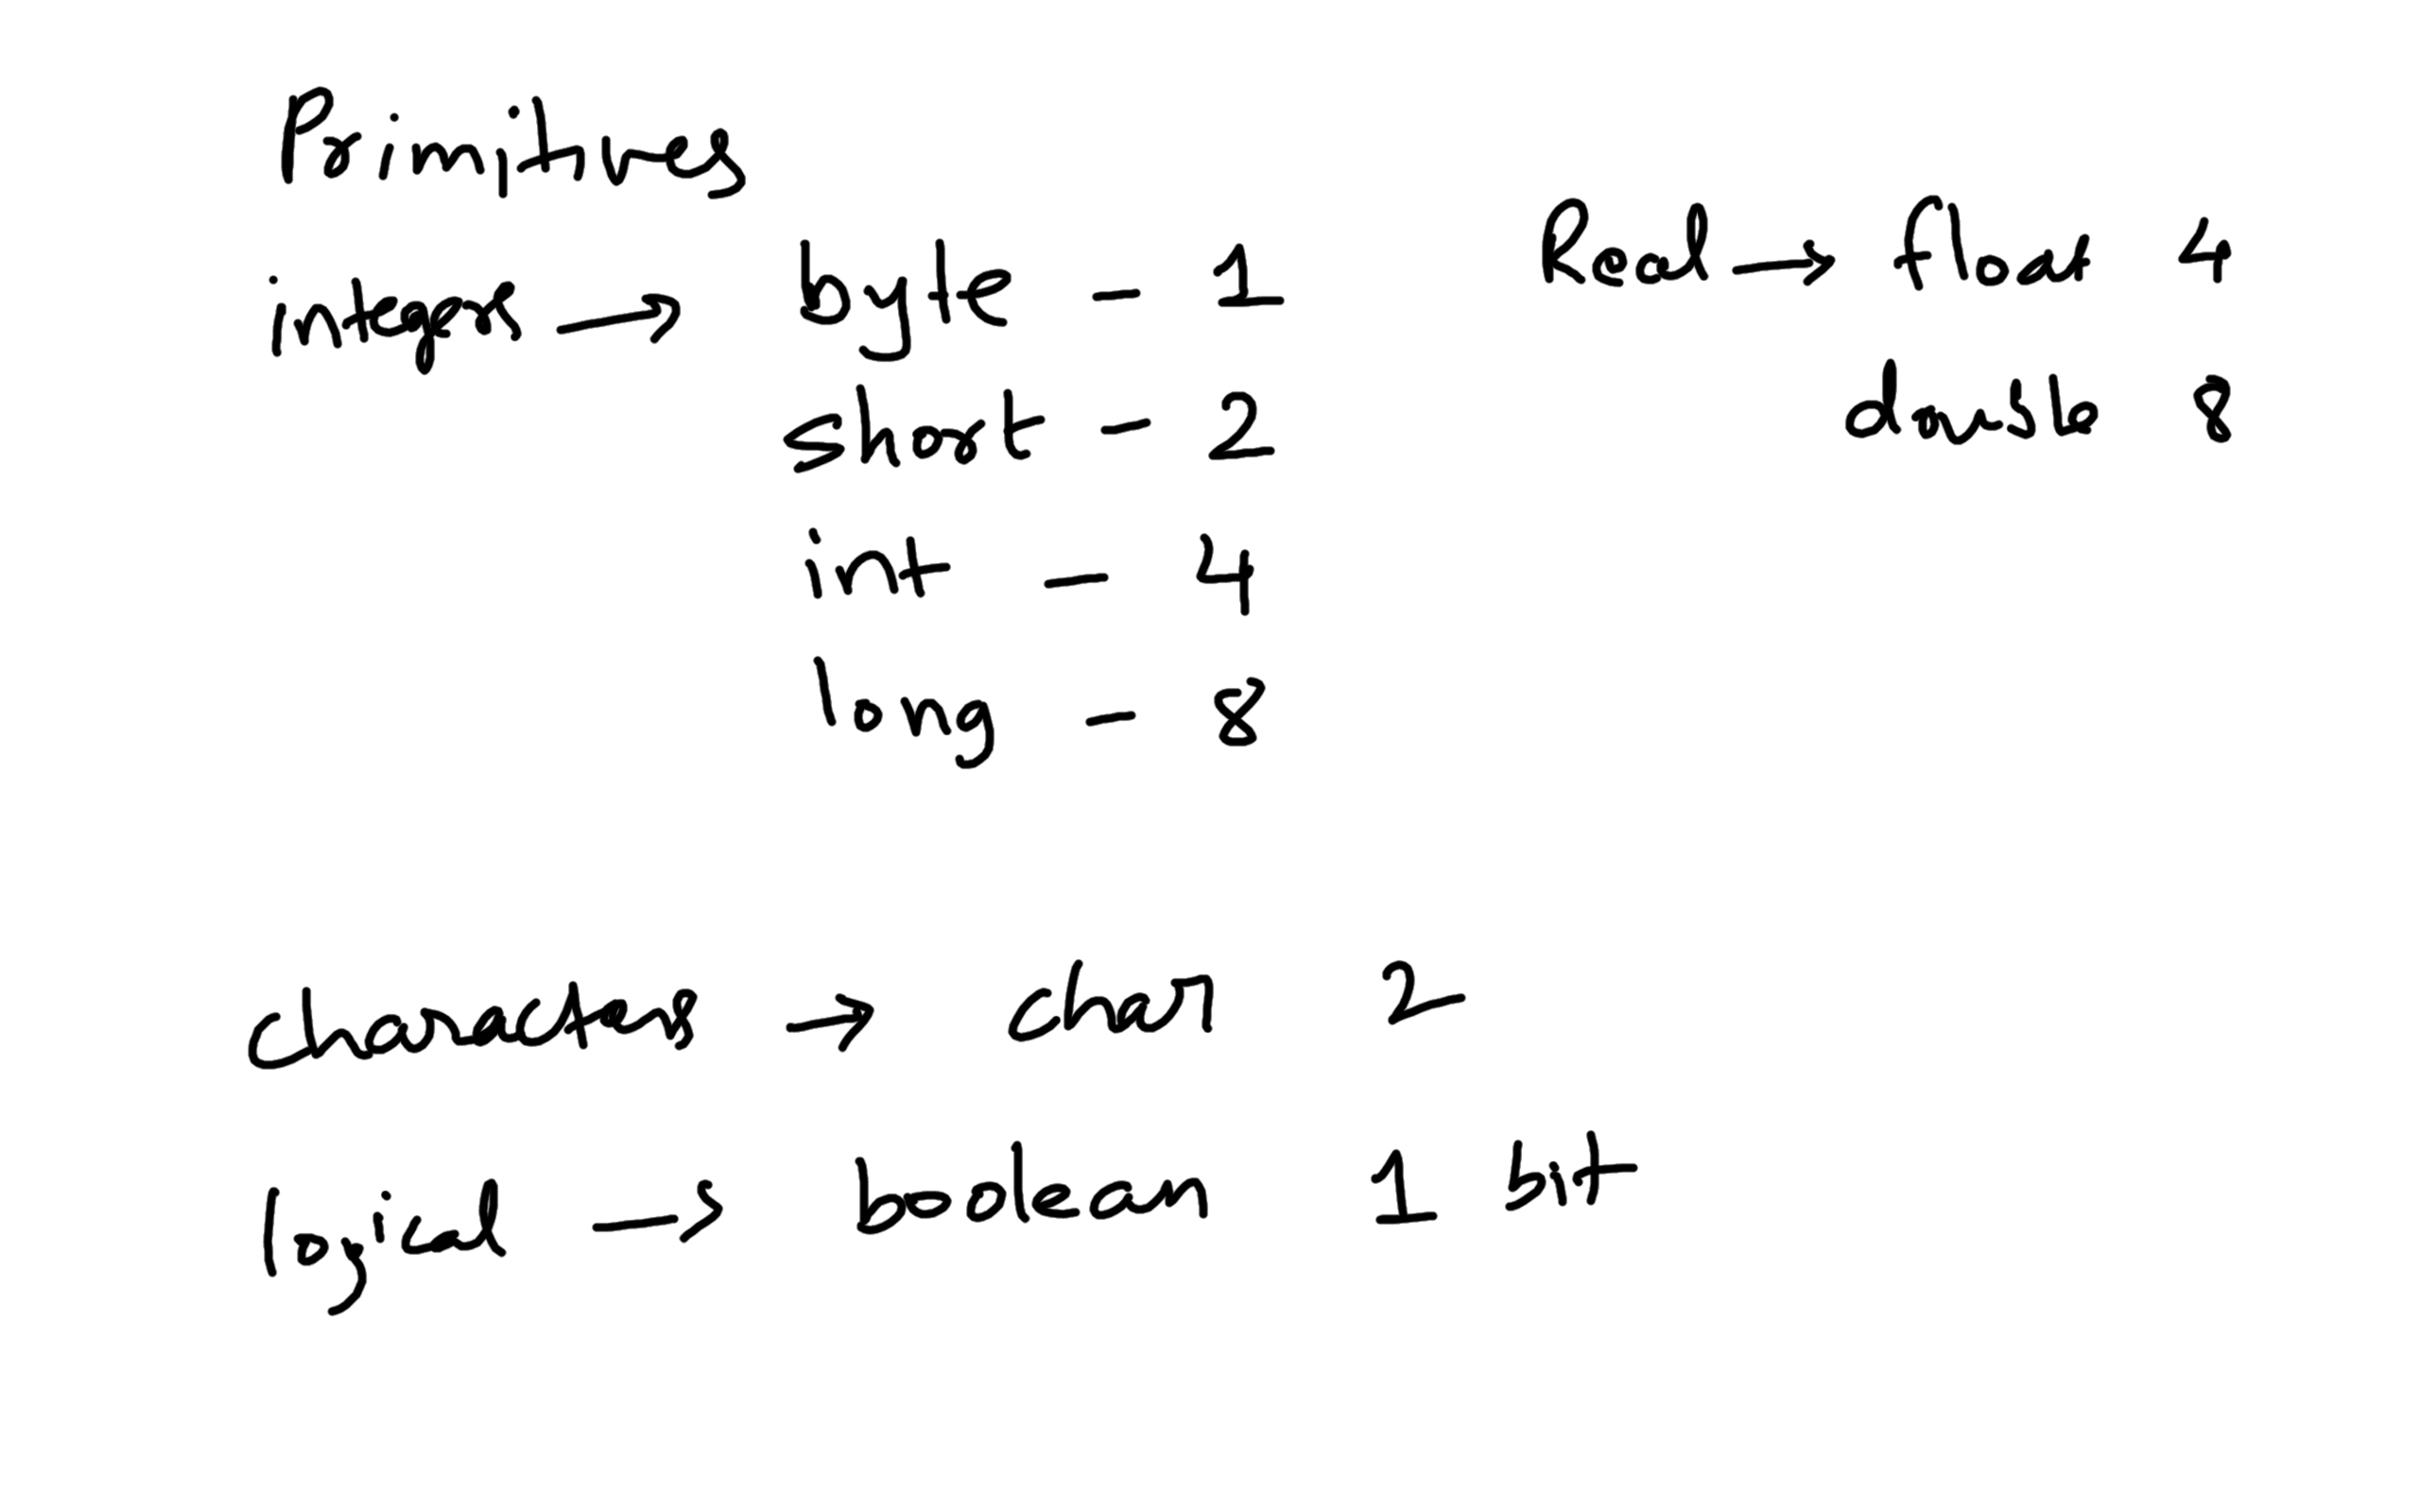 Primitives
integers → byte - 1
short - 2
int - 4
long - 8
Real → float 4
double 8
characters → char 2
logical → boolean 1 bit